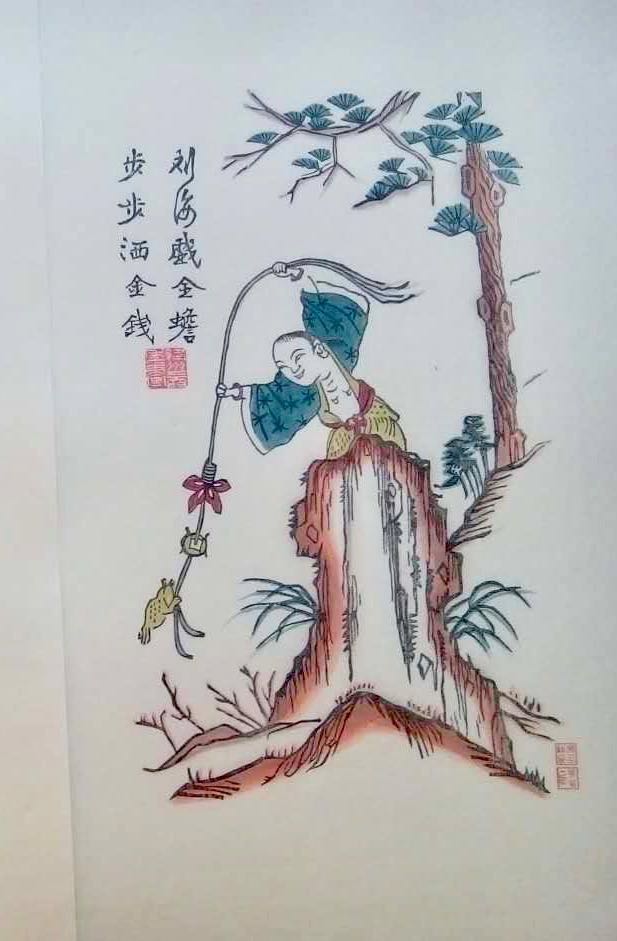 刘海戲金蟾
步步洒金錢